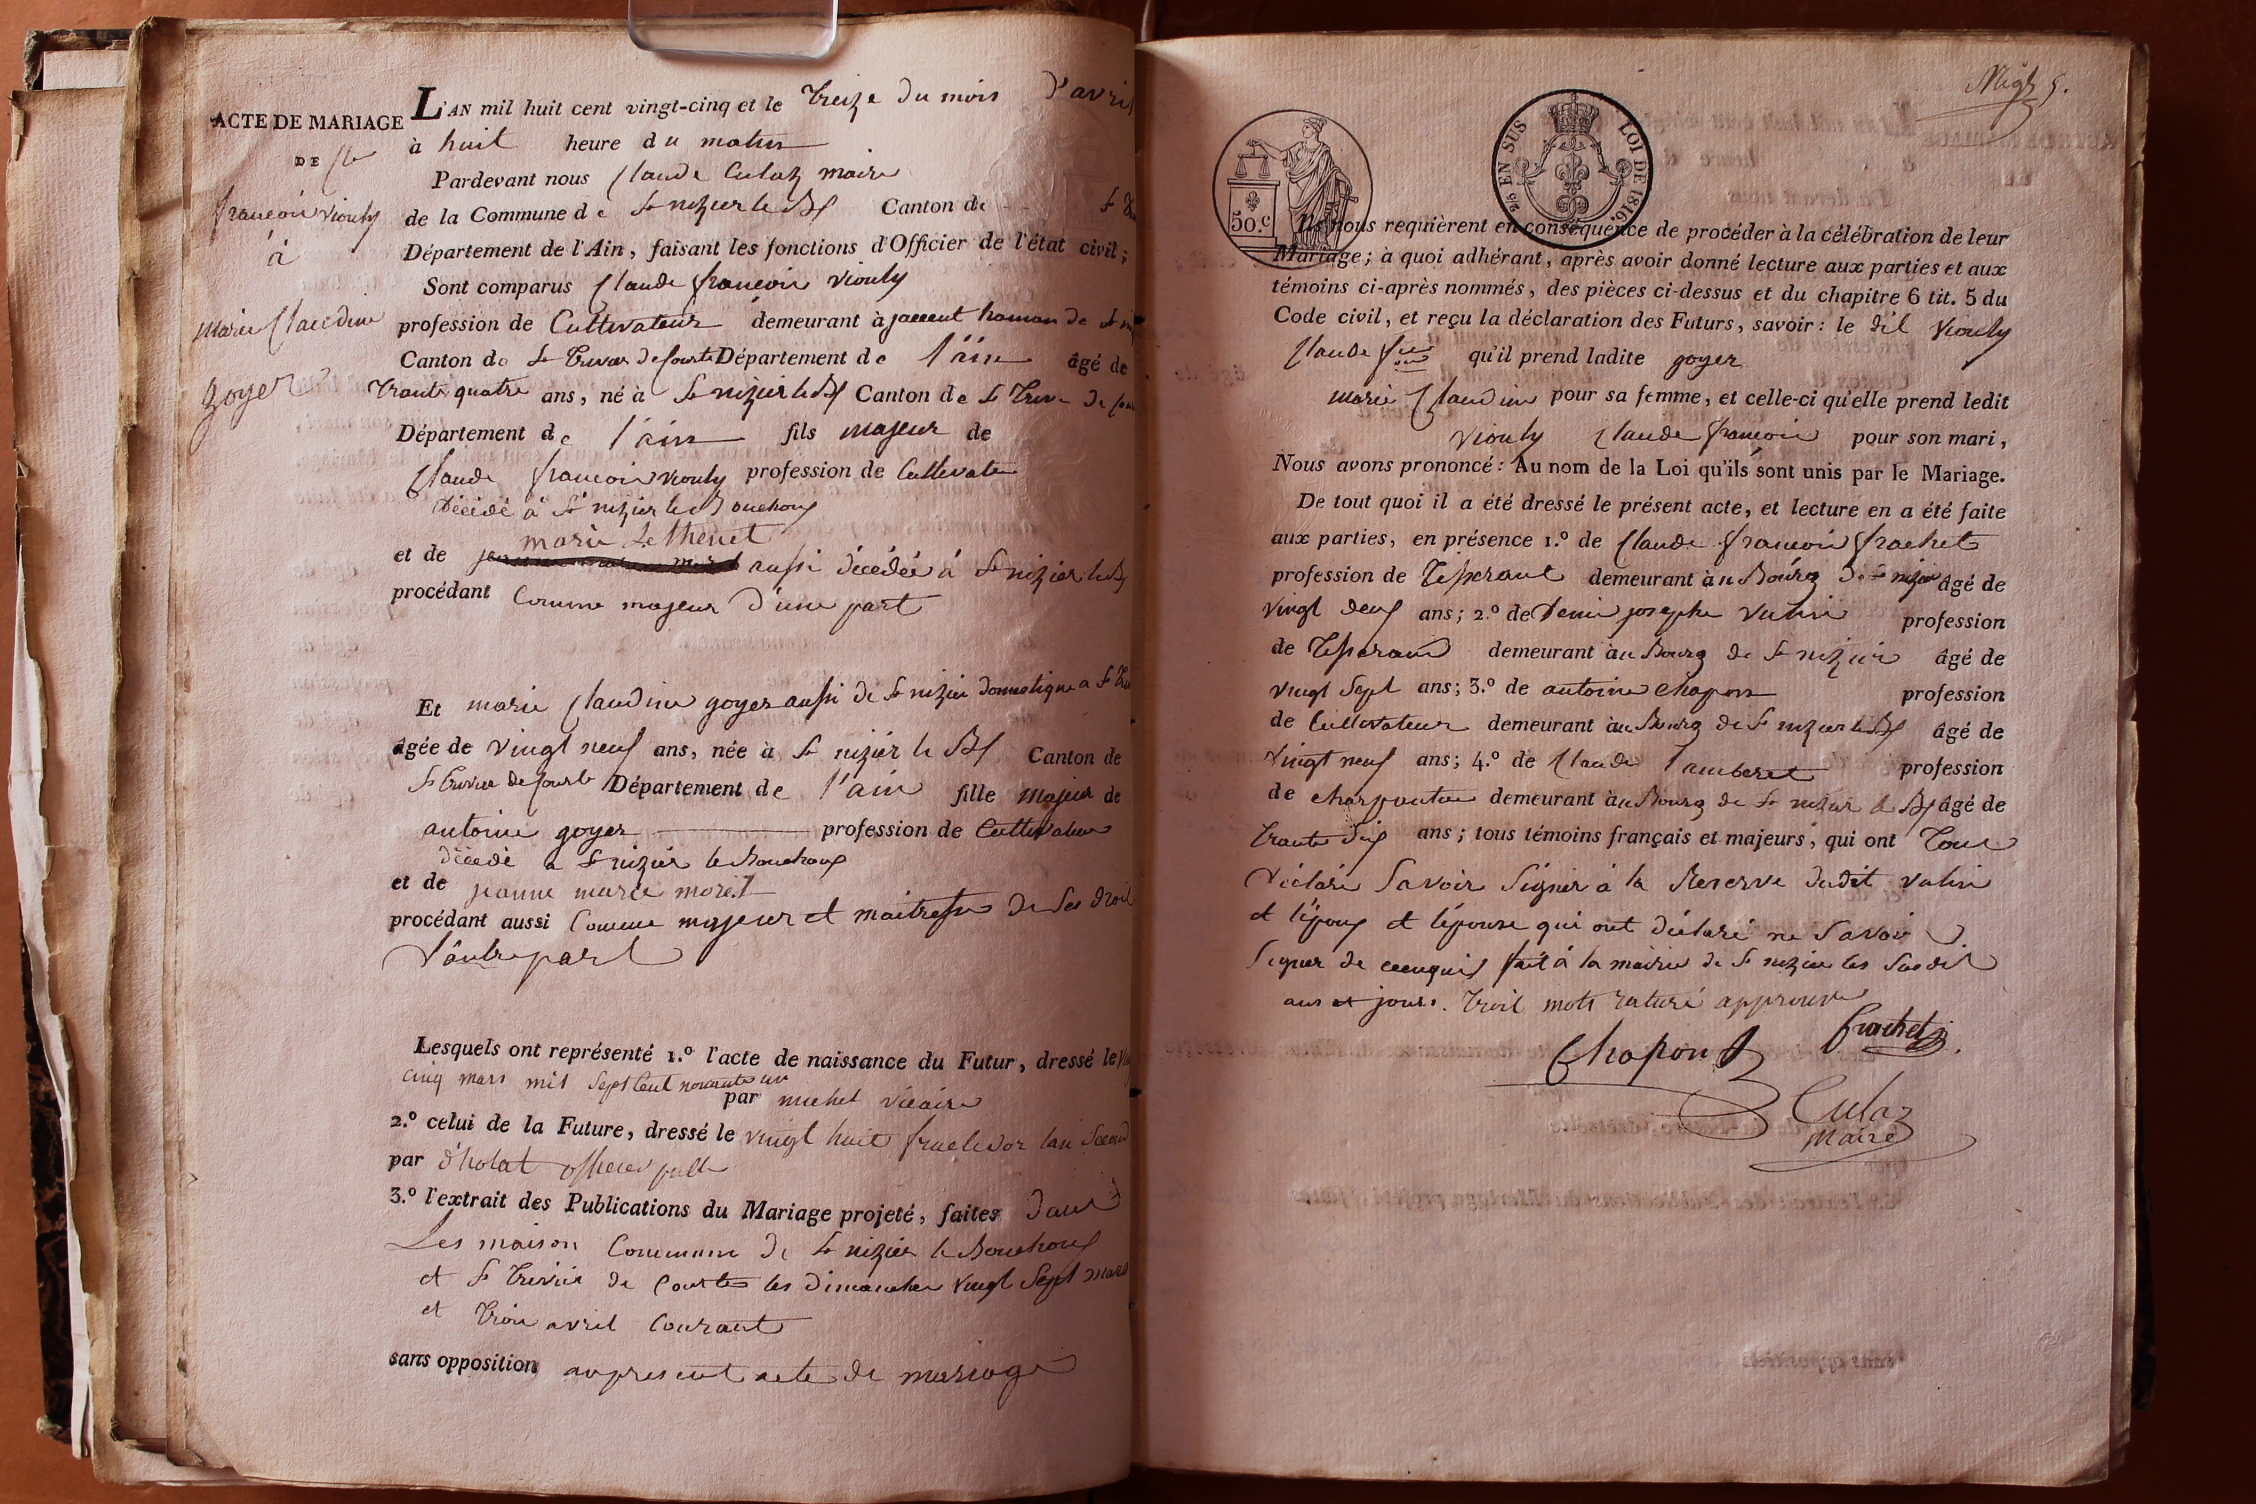 ACTE DE MARIAGE
DE Cde
françois viouly
à
marie Claudine
goyer
L'AN mil huit cent vingt-cinq et le treize du mois d'avril
à huit heure du matin
Pardevant nous Claude Culaz maire
de la Commune de St nizier le Bx Canton de St
Département de l'Ain, faisant les fonctions d'Officier de l'état civil ;
Sont comparus Claude françois viouly
profession de Cultivateur demeurant à hamau de St
Canton de St Trivier de Courte Département de l'ain âgé de
trante quatre ans, né à St nizier le Bx Canton de St Trivier de
Département de l'ain fils majeur de
Claude francois viouly profession de Cultivateur
décédé à St nizier le Bouchoux
marie Lethenet
et de aussi décédée à St nizier le Bx
procédant comme majeur d'une part
Et marie Claudine goyer aussi de St nizier domestique a St
âgée de vingt neuf ans, née à St nizier le Bx Canton de
St trivier de Courte Département de l'ain fille majeur de
antoine goyer profession de Cultivateur
décédé a St nizier le Bouchoux
et de jeanne marie morel
procédant aussi comme majeur et maitresse de ses droit
d'autre part
Lesquels ont représenté 1.º l'acte de naissance du Futur, dressé le
cinq mars mil sept cent novante un
par michel vicaire
2.º celui de la Future, dressé le vingt huit fructidor lan second
par officier
3.º l'extrait des Publications du Mariage projeté, faites dans
Les maison commune de St nizier le Bouchoux
et St Trivier de Courtes les dimanches vingt sept mars
et trois avril courant
sans opposition au présent acte de mariage
50.c
25 EN SUS LOI DE 1816.
Ils nous requièrent en conséquence de procéder à la célébration de leur
Mariage ; à quoi adhérant, après avoir donné lecture aux parties et aux
témoins ci-après nommés, des pièces ci-dessus et du chapitre 6 tit. 5 du
Code civil, et reçu la déclaration des Futurs, savoir : le dit viouly
Claude fcois qu'il prend ladite goyer
marie Claudine pour sa femme, et celle-ci qu'elle prend ledit
viouly Claude francois pour son mari,
Nous avons prononcé : Au nom de la Loi qu'ils sont unis par le Mariage.
De tout quoi il a été dressé le présent acte, et lecture en a été faite
aux parties, en présence 1.º de Claude françois frachet
profession de Tisserant demeurant à u Bourg de St nizier âgé de
vingt deux ans ; 2.º de Denis josephe vulin profession
de Tisserand demeurant à u Bourg de St nizier âgé de
vingt sept ans ; 3.º de antoine Chapon profession
de Cultivateur demeurant à u Bourg de St nizier le Bx âgé de
vingt neuf ans ; 4.º de Claude Tamberet profession
de charpentier demeurant à u Bourg de St nizier le Bx âgé de
trante dix ans ; tous témoins français et majeurs, qui ont tous
déclaré savoir signer à la Reserve dudit vulin
et l'époux et l'épouse qui ont déclaré ne savoir
signer de ce enquis fait à la mairie de St nizier les susdit
ans et jours. troit mots raturé approuvé
Chapon frachet
Culaz
maire